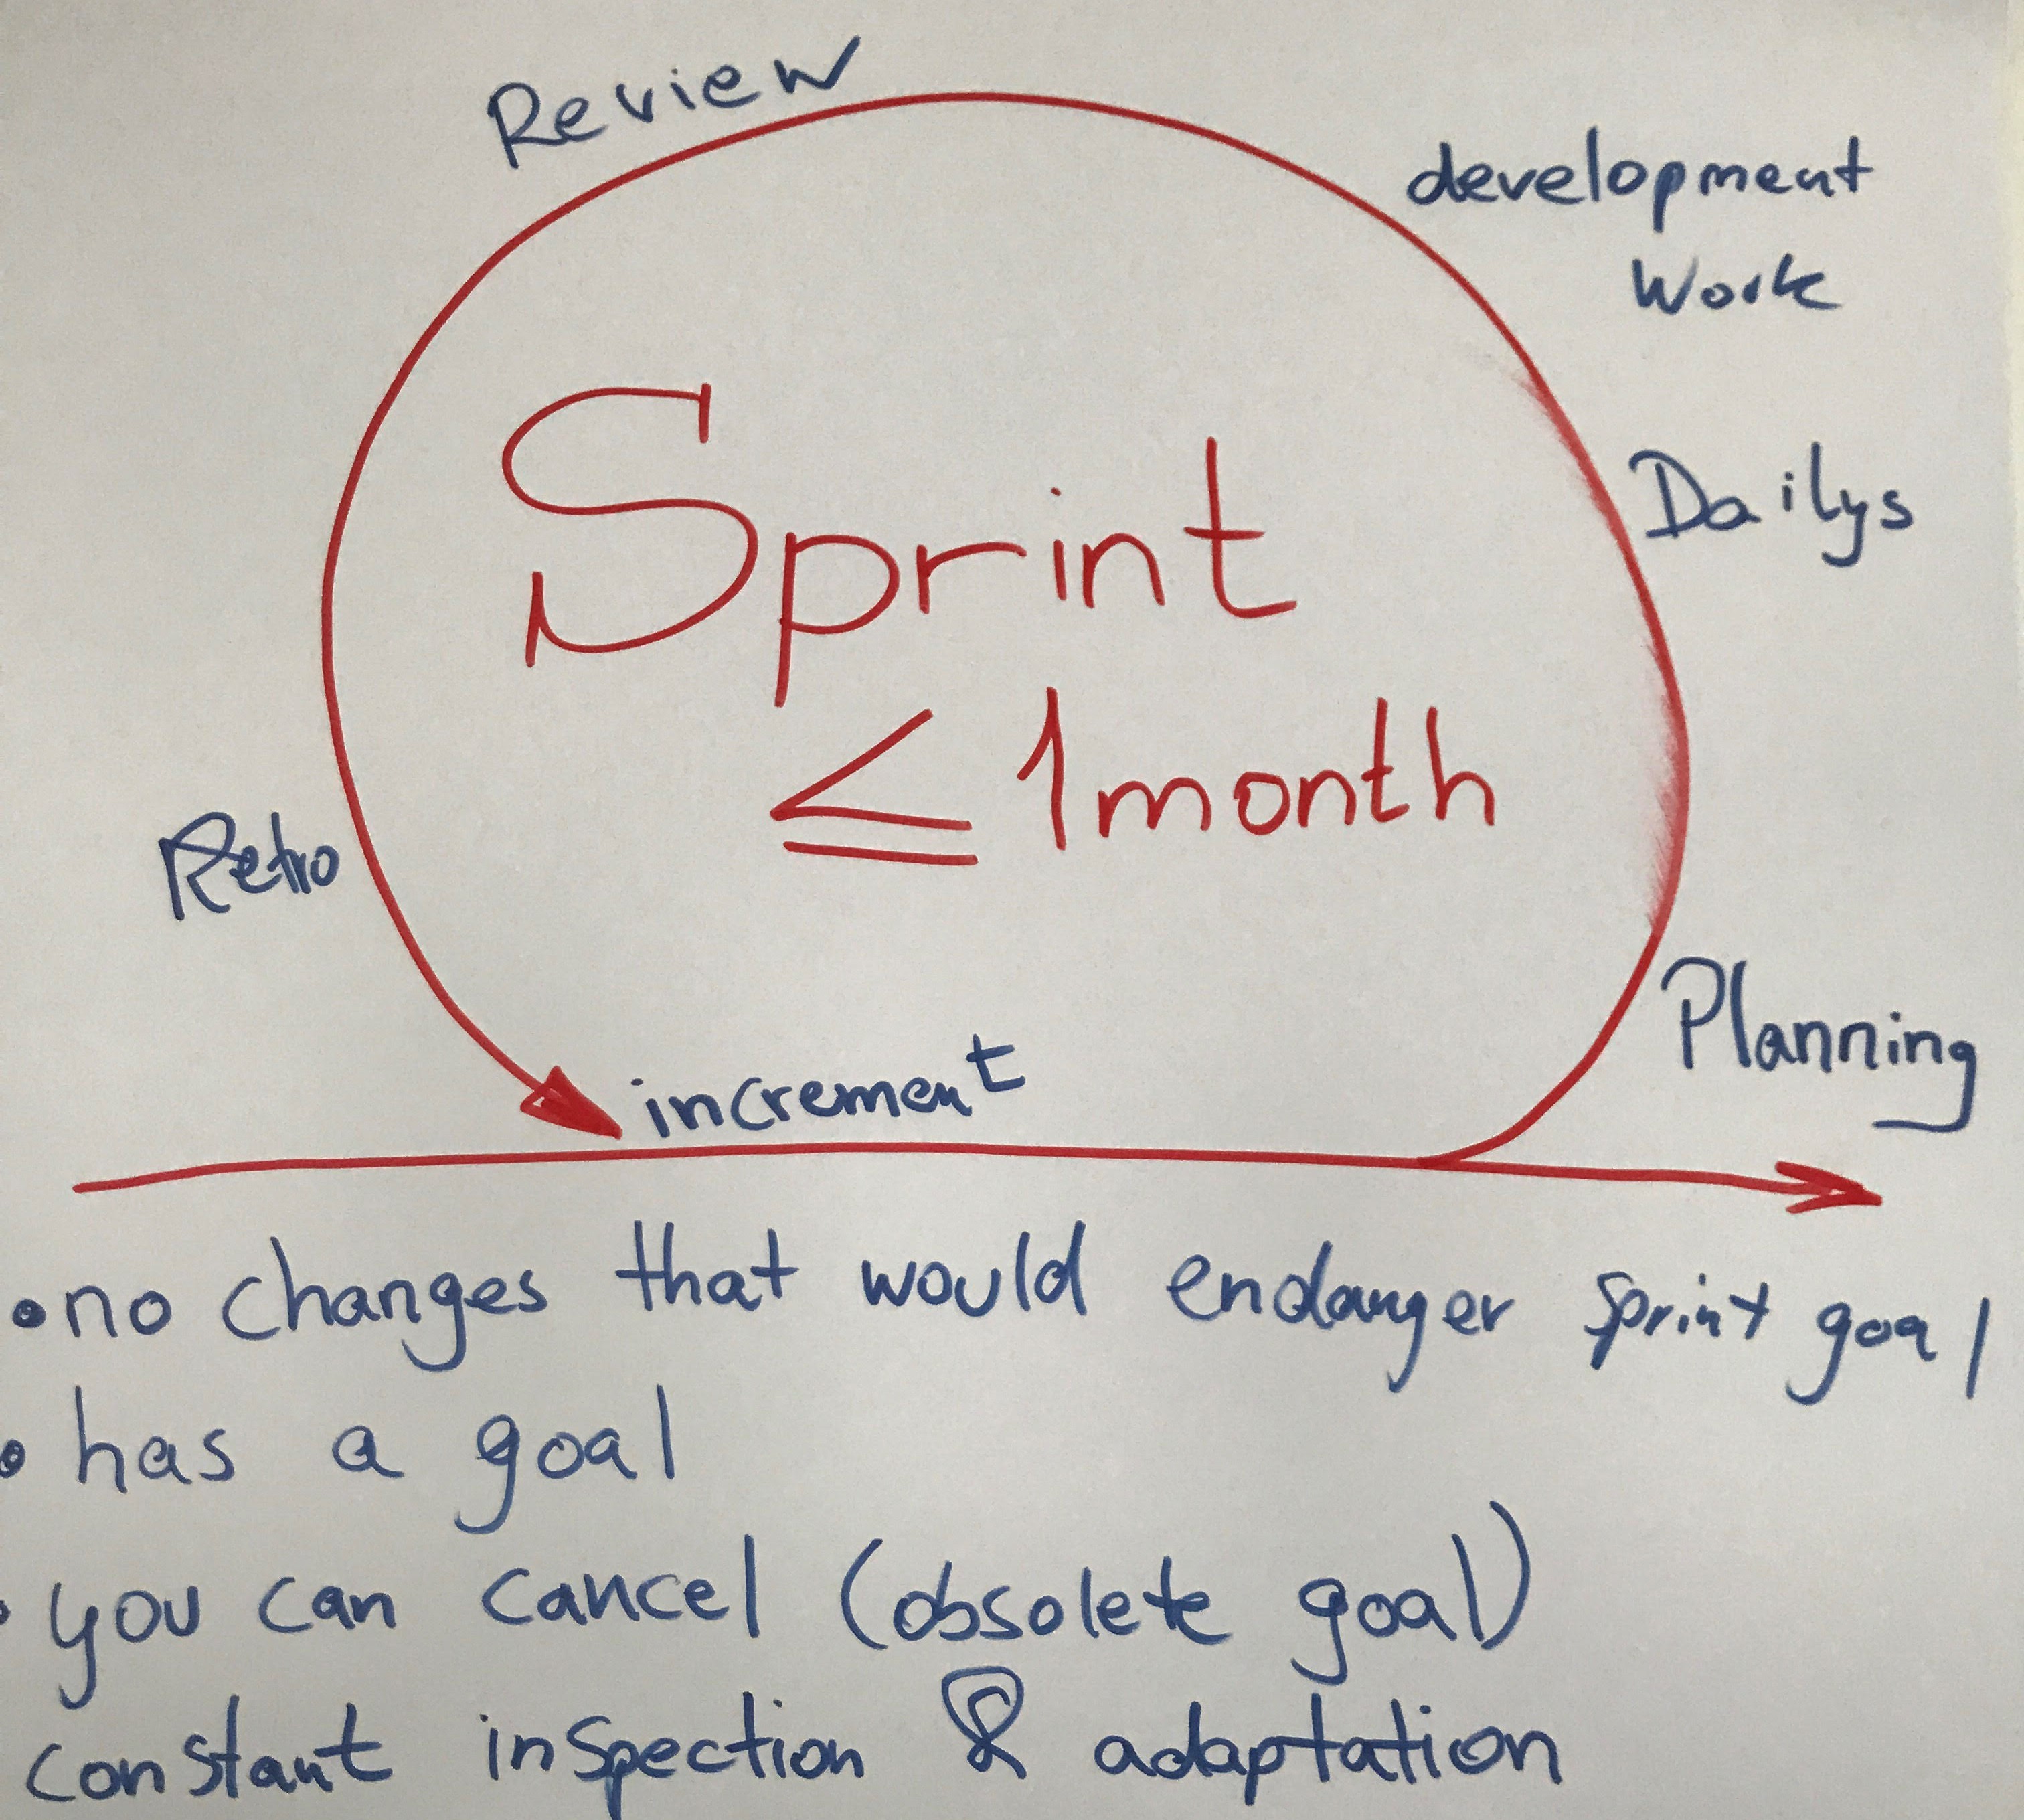 Review
development
Work
Dailys
Sprint
≤ 1 month
Retro
Planning
increment
• no changes that would endanger sprint goal
• has a goal
• you can cancel (obsolete goal)
constant inspection & adaptation